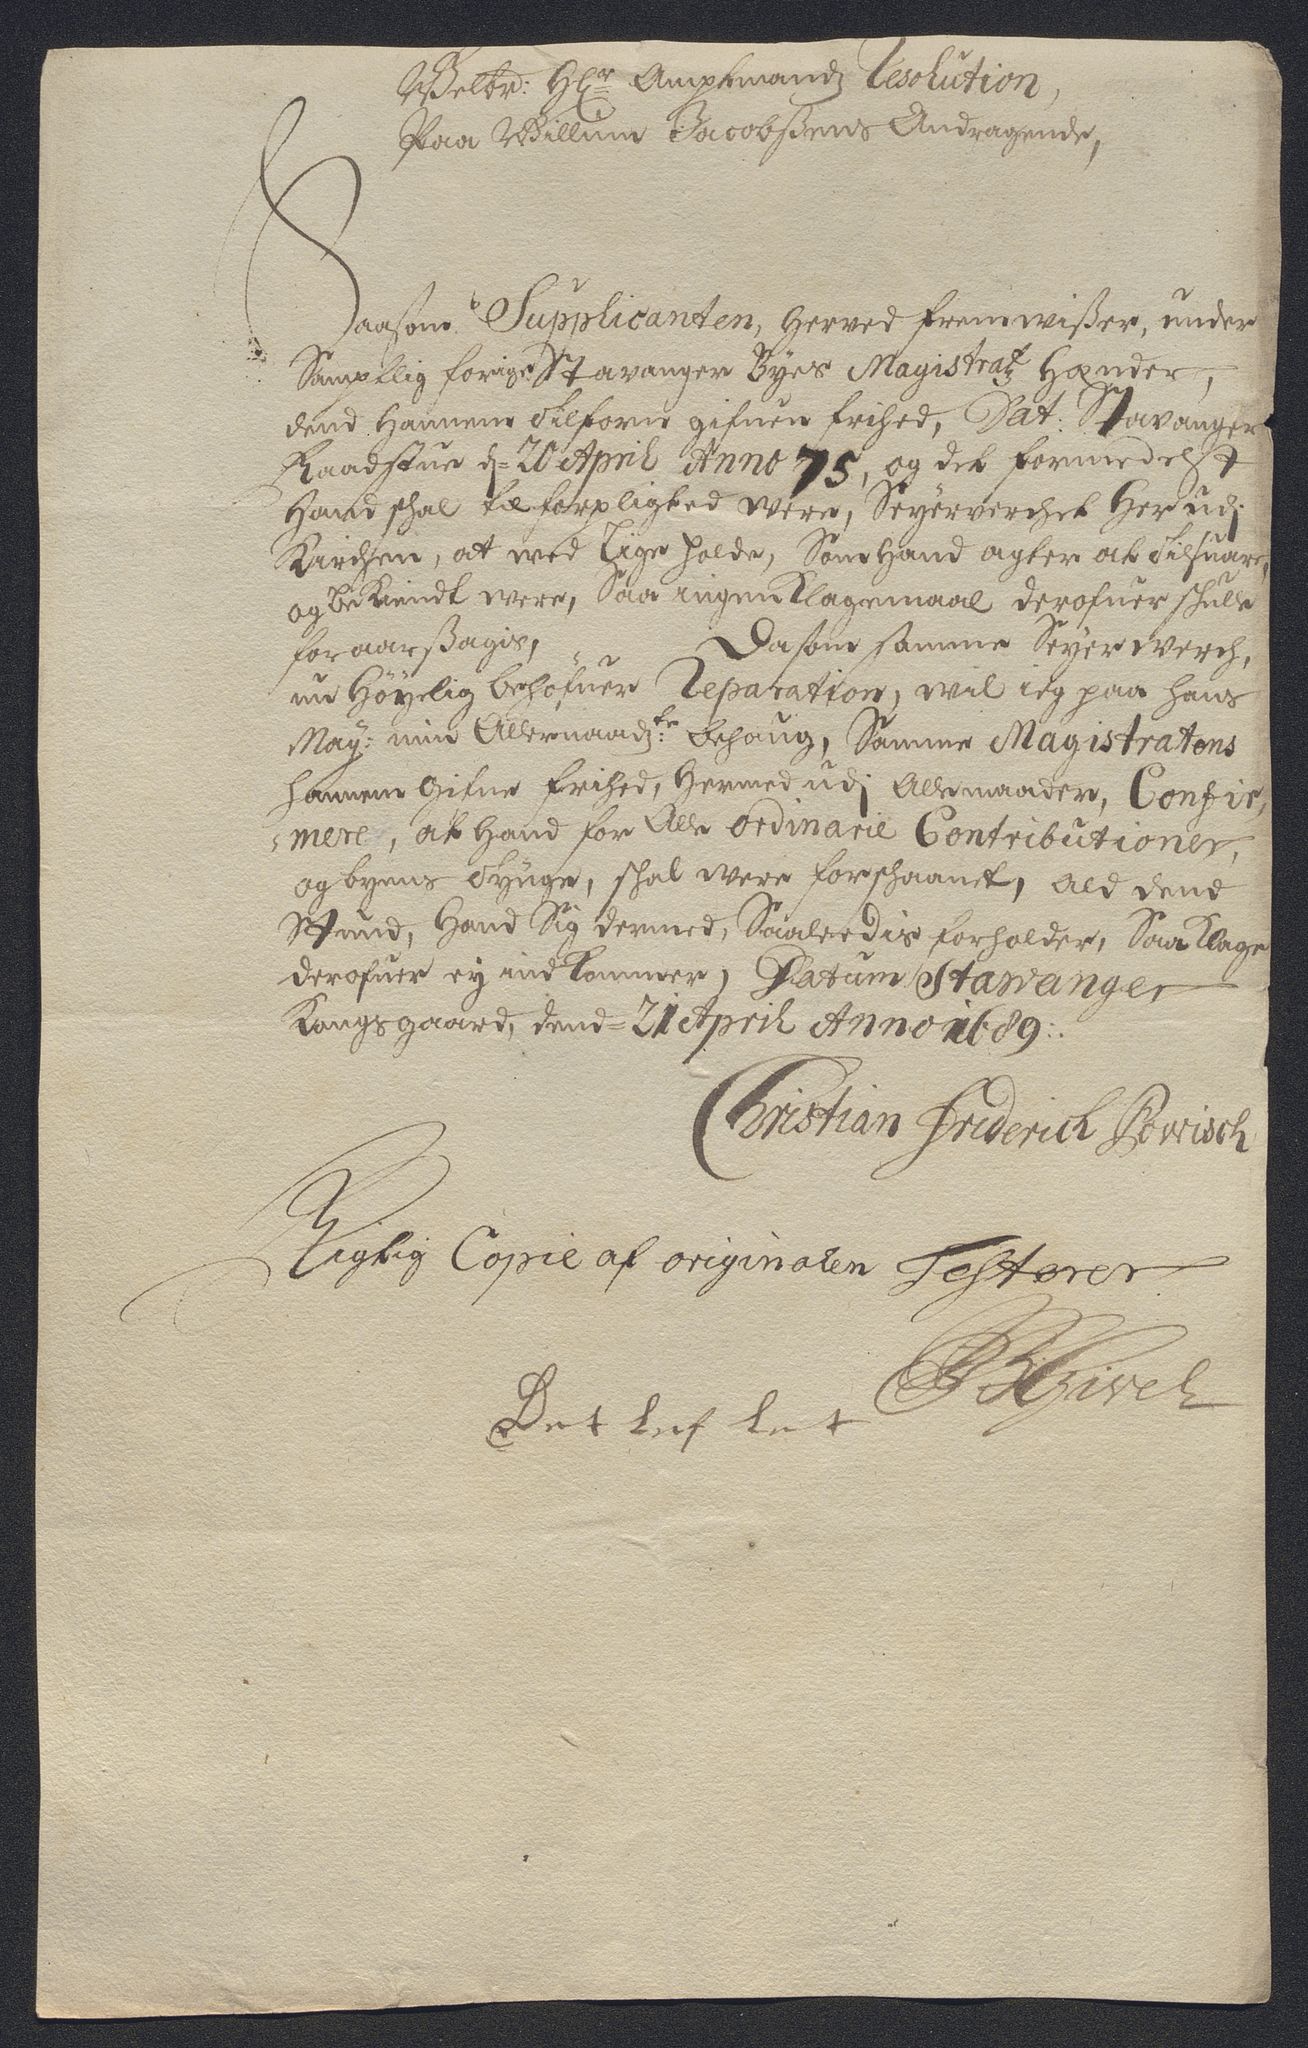 Welbr: Hr Amptmands Resolution,
Paa Willum Jacobsens Andragende,
Saasom Supplicanten, herved fremwißer, under
Samptlig forige Stavanger Byes Magistratz Hænder,
dend hannem tilforn gifuen frihed, Dat: Stavanger
Raadstue d= 20 April Anno 75, og det formedelst
Hand schal til forpligted were, Seyerverchet Her udj
Kirchen, at wed lige holde, Som Hand agter at tilsuare,
og bekiendt were, Saa ingen Klagemaal derofuer schulle
foraarßagis, Dasom samme Seyerwerch,
nu Høyelig behøfuer Reparation, wil ieg paa hans
May: min Allernaadste behaug, Samme Magistratens
hannem gifne frihed, hermed udj Alle maader, Confir-
mere, at Hand for Alle ordinarie Contributioner,
og byens tynge, schal were forschaanet, ald dend
Stund, Hand Sig dermed, Saaleedis forholder, Saa Klage
derofuer ey ind kommer, Datum Stavanger
Kongsgaard, dend= 21 April Anno 1689:.
Christian Friderich Powisch
Rigtig Copie af originalen Testerer
Detlef let